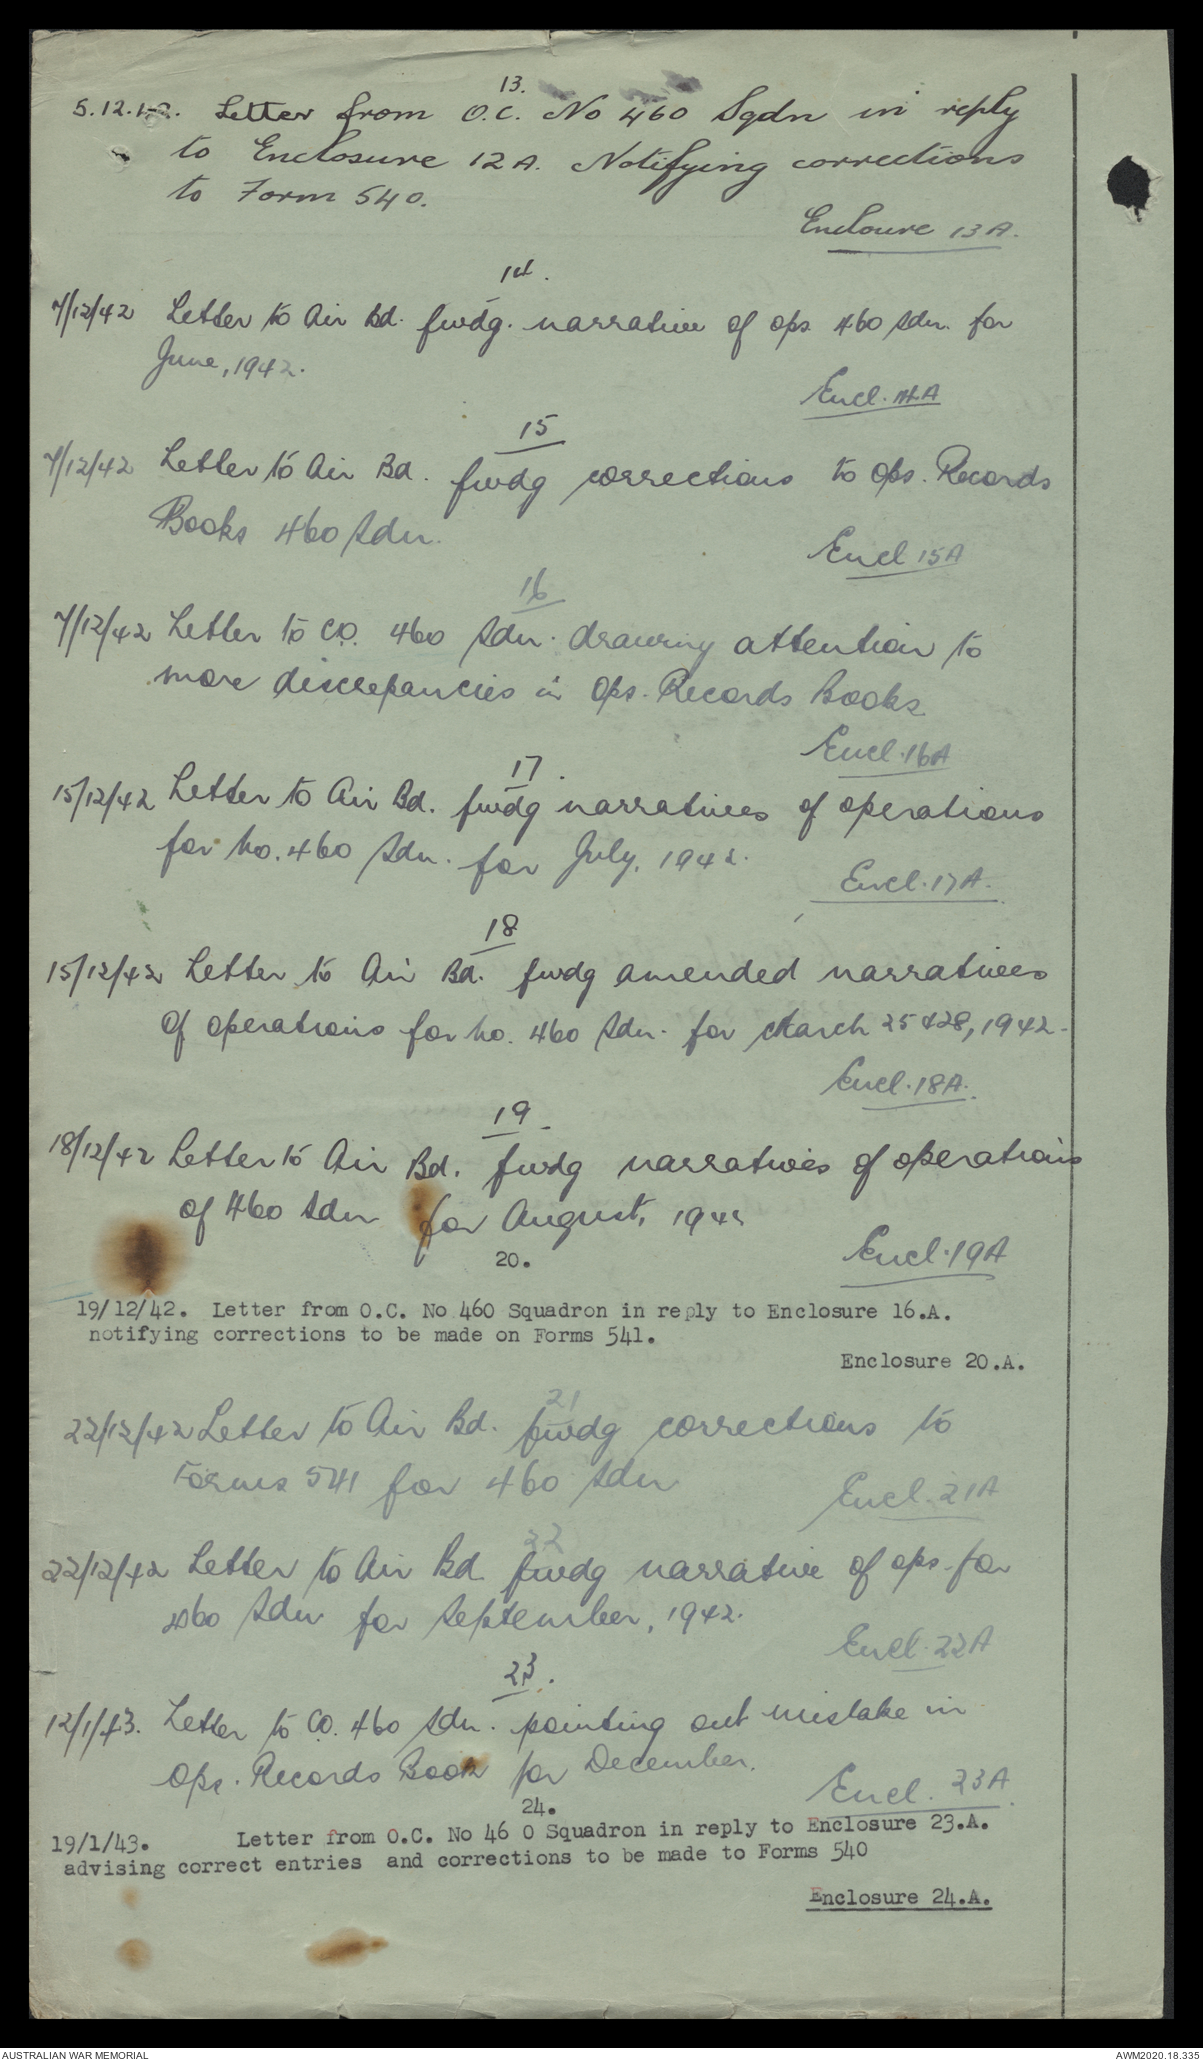 13.
5.12.42. Letter from O.C. No 460 Sqdn in reply
to Enclosure 12A. Notifying corrections
to Form 540.
Encloure 13A.
14.
7/12/42 Letter to Air Bd. fwdg. narrative of ops 460 Sdn. for
June, 1942.
Encl. 14A
15
7/12/42 Letter to Air Bd. fwdg corrections to Ops. Records
Books 460 Sdn.
Encl 15A
16
7/12/42 Letter to C.O. 460 Sdn. drawing attention to
more discrepancies in Ops. Records Books
Encl. 16A
17.
15/12/42 Letter to Air Bd. fwdg narratives of operations
for No. 460 Sdn. for July, 1942.
Encl. 17A.
18
15/12/42 Letter to Air Bd. fwdg amended narratives
of operations for No. 460 Sdn. for March 25 & 28, 1942.
Encl. 18A.
19.
18/12/42 Letter to Air Bd. fwdg narratives of operations
of 460 Sdn for August, 1942
Encl. 19A
20.
19/12/42. Letter from O.C. No 460 Squadron in reply to Enclosure 16.A.
notifying corrections to be made on Forms 541.
Enclosure 20.A.
21
22/12/42 Letter to Air Bd. fwdg corrections to
Forms 541 for 460 Sdn
Encl. 21A
22
22/12/42 Letter to Air Bd. fwdg narrative of ops for
460 Sdn for September, 1942.
Encl. 22A
23.
12/1/43. Letter to C.O. 460 Sdn. pointing out mistake in
Ops. Records Book for December.
Encl. 23A.
24.
19/1/43. Letter from O.C. No 46 0 Squadron in reply to Enclosure 23.A.
advising correct entries and corrections to be made to Forms 540
Enclosure 24.A.
AUSTRALIAN WAR MEMORIAL
AWM2020.18.335